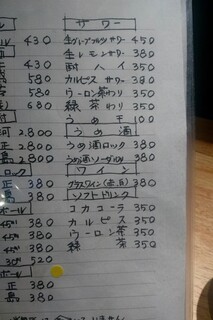 ル
430
430
580
580
680
2.800
2.800
2.800
ロック
正 380
島 380
ボール
380
380
380
30° 520
ボール
正 380
島 380
サワー
生グレープフルーツサワー 450
生レモンサワー 380
酎ハイ 350
カルピスサワー 380
ウーロン茶わり 350
緑茶わり 350
うめ干 100
うめ酒
うめ酒ロック 380
うめ酒ソーダ 380
ワイン
グラスワイン(赤、白) 380
ソフトドリンク
コカコーラ 350
カルピス 350
ウーロン茶 350
緑茶 350